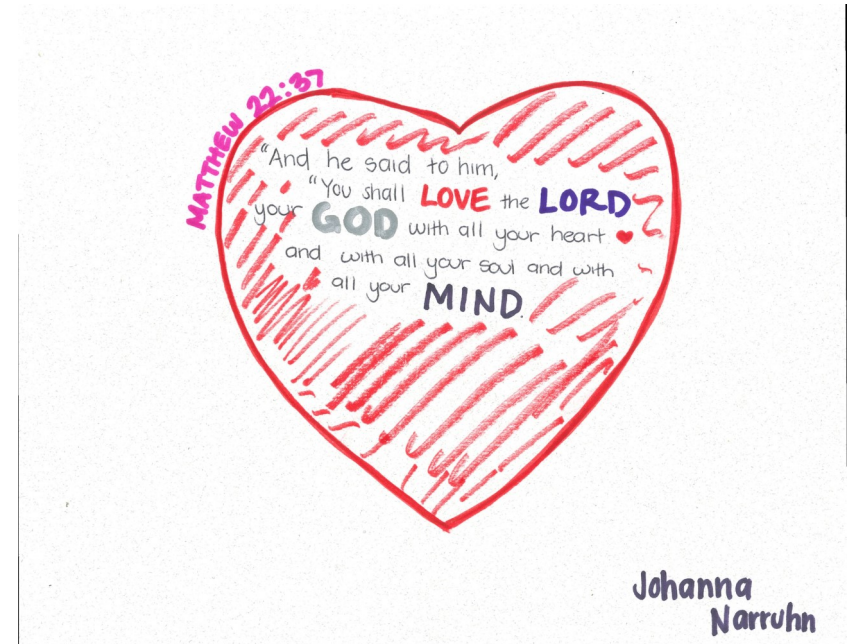 MATTHEW 22:37
"And he said to him,
"You shall LOVE the LORD
your GOD with all your heart
and with all your soul and with
all your MIND.
Johanna
Narruhn